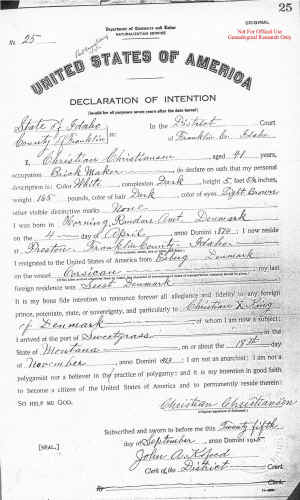 25
ORIGINAL
Department of Commerce and Labor
NATURALIZATION SERVICE
Not For Official Use
Genealogical Research Only
No. 25
UNITED STATES OF AMERICA
DECLARATION OF INTENTION
(Invalid for all purposes seven years after the date hereof)
State of Idaho
County of Franklin ss:
In the District Court
of Franklin Co. Idaho
I, Christian Christiansen, aged 41 years,
occupation Brick Maker, do declare on oath that my personal
description is: Color White, complexion Dark, height 5 feet inches,
weight 165 pounds, color of hair Dark, color of eyes Light Brown
other visible distinctive marks None
I was born in Denmark
on the 4 day of April, anno Domini 1874; I now reside
at Preston, Franklin County, Idaho
I emigrated to the United States of America from Denmark
on the vessel Corsican; my last
foreign residence was Seest Denmark
It is my bona fide intention to renounce forever all allegiance and fidelity to any foreign
prince, potentate, state, or sovereignty, and particularly to Christian X King
of Denmark, of whom I am now a subject;
I arrived at the port of Sweetgrass, in the
State of Montana, on or about the 18th day
of November, anno Domini; I am not an anarchist; I am not a
polygamist nor a believer in the practice of polygamy; and it is my intention in good faith
to become a citizen of the United States of America and to permanently reside therein:
SO HELP ME GOD.
Christian Christiansen
(Original signature of declarant.)
Subscribed and sworn to before me this Twenty fifth
[SEAL.]
day of September, anno Domini 1915
John A.
Clerk of the District Court.